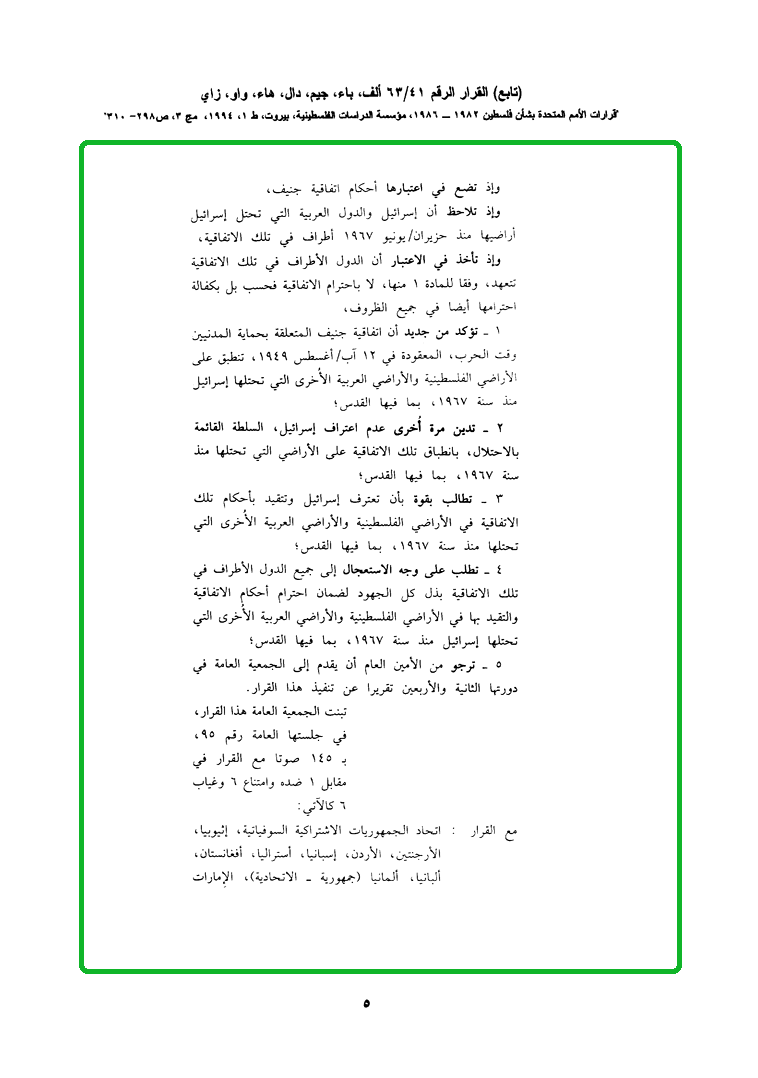 (تابع) القرار الرقم ٦٣/٤١ ألف، باء، جيم، دال، هاء، واو، زاي
"قرارات الأمم المتحدة بشأن فلسطين ١٩٨٢ ــ ١٩٨٦، مؤسسة الدراسات الفلسطينية، بيروت، ط ١، ١٩٩٤، مج ٣، ص٢٩٨- ٣١٠"
وإذ تضع في اعتبارها أحكام اتفاقية جنيف،
وإذ تلاحظ أن إسرائيل والدول العربية التي تحتل إسرائيل
أراضيها منذ حزيران/يونيو ١٩٦٧ أطراف في تلك الاتفاقية،
وإذ تأخذ في الاعتبار أن الدول الأطراف في تلك الاتفاقية
تتعهد، وفقا للمادة ١ منها، لا باحترام الاتفاقية فحسب بل بكفالة
احترامها أيضا في جميع الظروف،
١ ـ تؤكد من جديد أن اتفاقية جنيف المتعلقة بحماية المدنيين
وقت الحرب، المعقودة في ١٢ آب/أغسطس ١٩٤٩، تنطبق على
الأراضي الفلسطينية والأراضي العربية الأُخرى التي تحتلها إسرائيل
منذ سنة ١٩٦٧، بما فيها القدس؛
٢ ـ تدين مرة أُخرى عدم اعتراف إسرائيل، السلطة القائمة
بالاحتلال، بانطباق تلك الاتفاقية على الأراضي التي تحتلها منذ
سنة ١٩٦٧، بما فيها القدس؛
٣ ـ تطالب بقوة بأن تعترف إسرائيل وتتقيد بأحكام تلك
الاتفاقية في الأراضي الفلسطينية والأراضي العربية الأُخرى التي
تحتلها منذ سنة ١٩٦٧، بما فيها القدس؛
٤ ـ تطلب على وجه الاستعجال إلى جميع الدول الأطراف في
تلك الاتفاقية بذل كل الجهود لضمان احترام أحكام الاتفاقية
والتقيد بها في الأراضي الفلسطينية والأراضي العربية الأُخرى التي
تحتلها إسرائيل منذ سنة ١٩٦٧، بما فيها القدس؛
٥ ـ ترجو من الأمين العام أن يقدم إلى الجمعية العامة في
دورتها الثانية والأربعين تقريرا عن تنفيذ هذا القرار.
تبنت الجمعية العامة هذا القرار،
في جلستها العامة رقم ٩٥،
بـ ١٤٥ صوتا مع القرار في
مقابل ١ ضده وامتناع ٦ وغياب
٦ كالآتي:
مع القرار : اتحاد الجمهوريات الاشتراكية السوفياتية، إثيوبيا،
الأرجنتين، الأردن، إسبانيا، أستراليا، أفغانستان،
ألبانيا، ألمانيا (جمهورية ـ الاتحادية)، الإمارات
٥